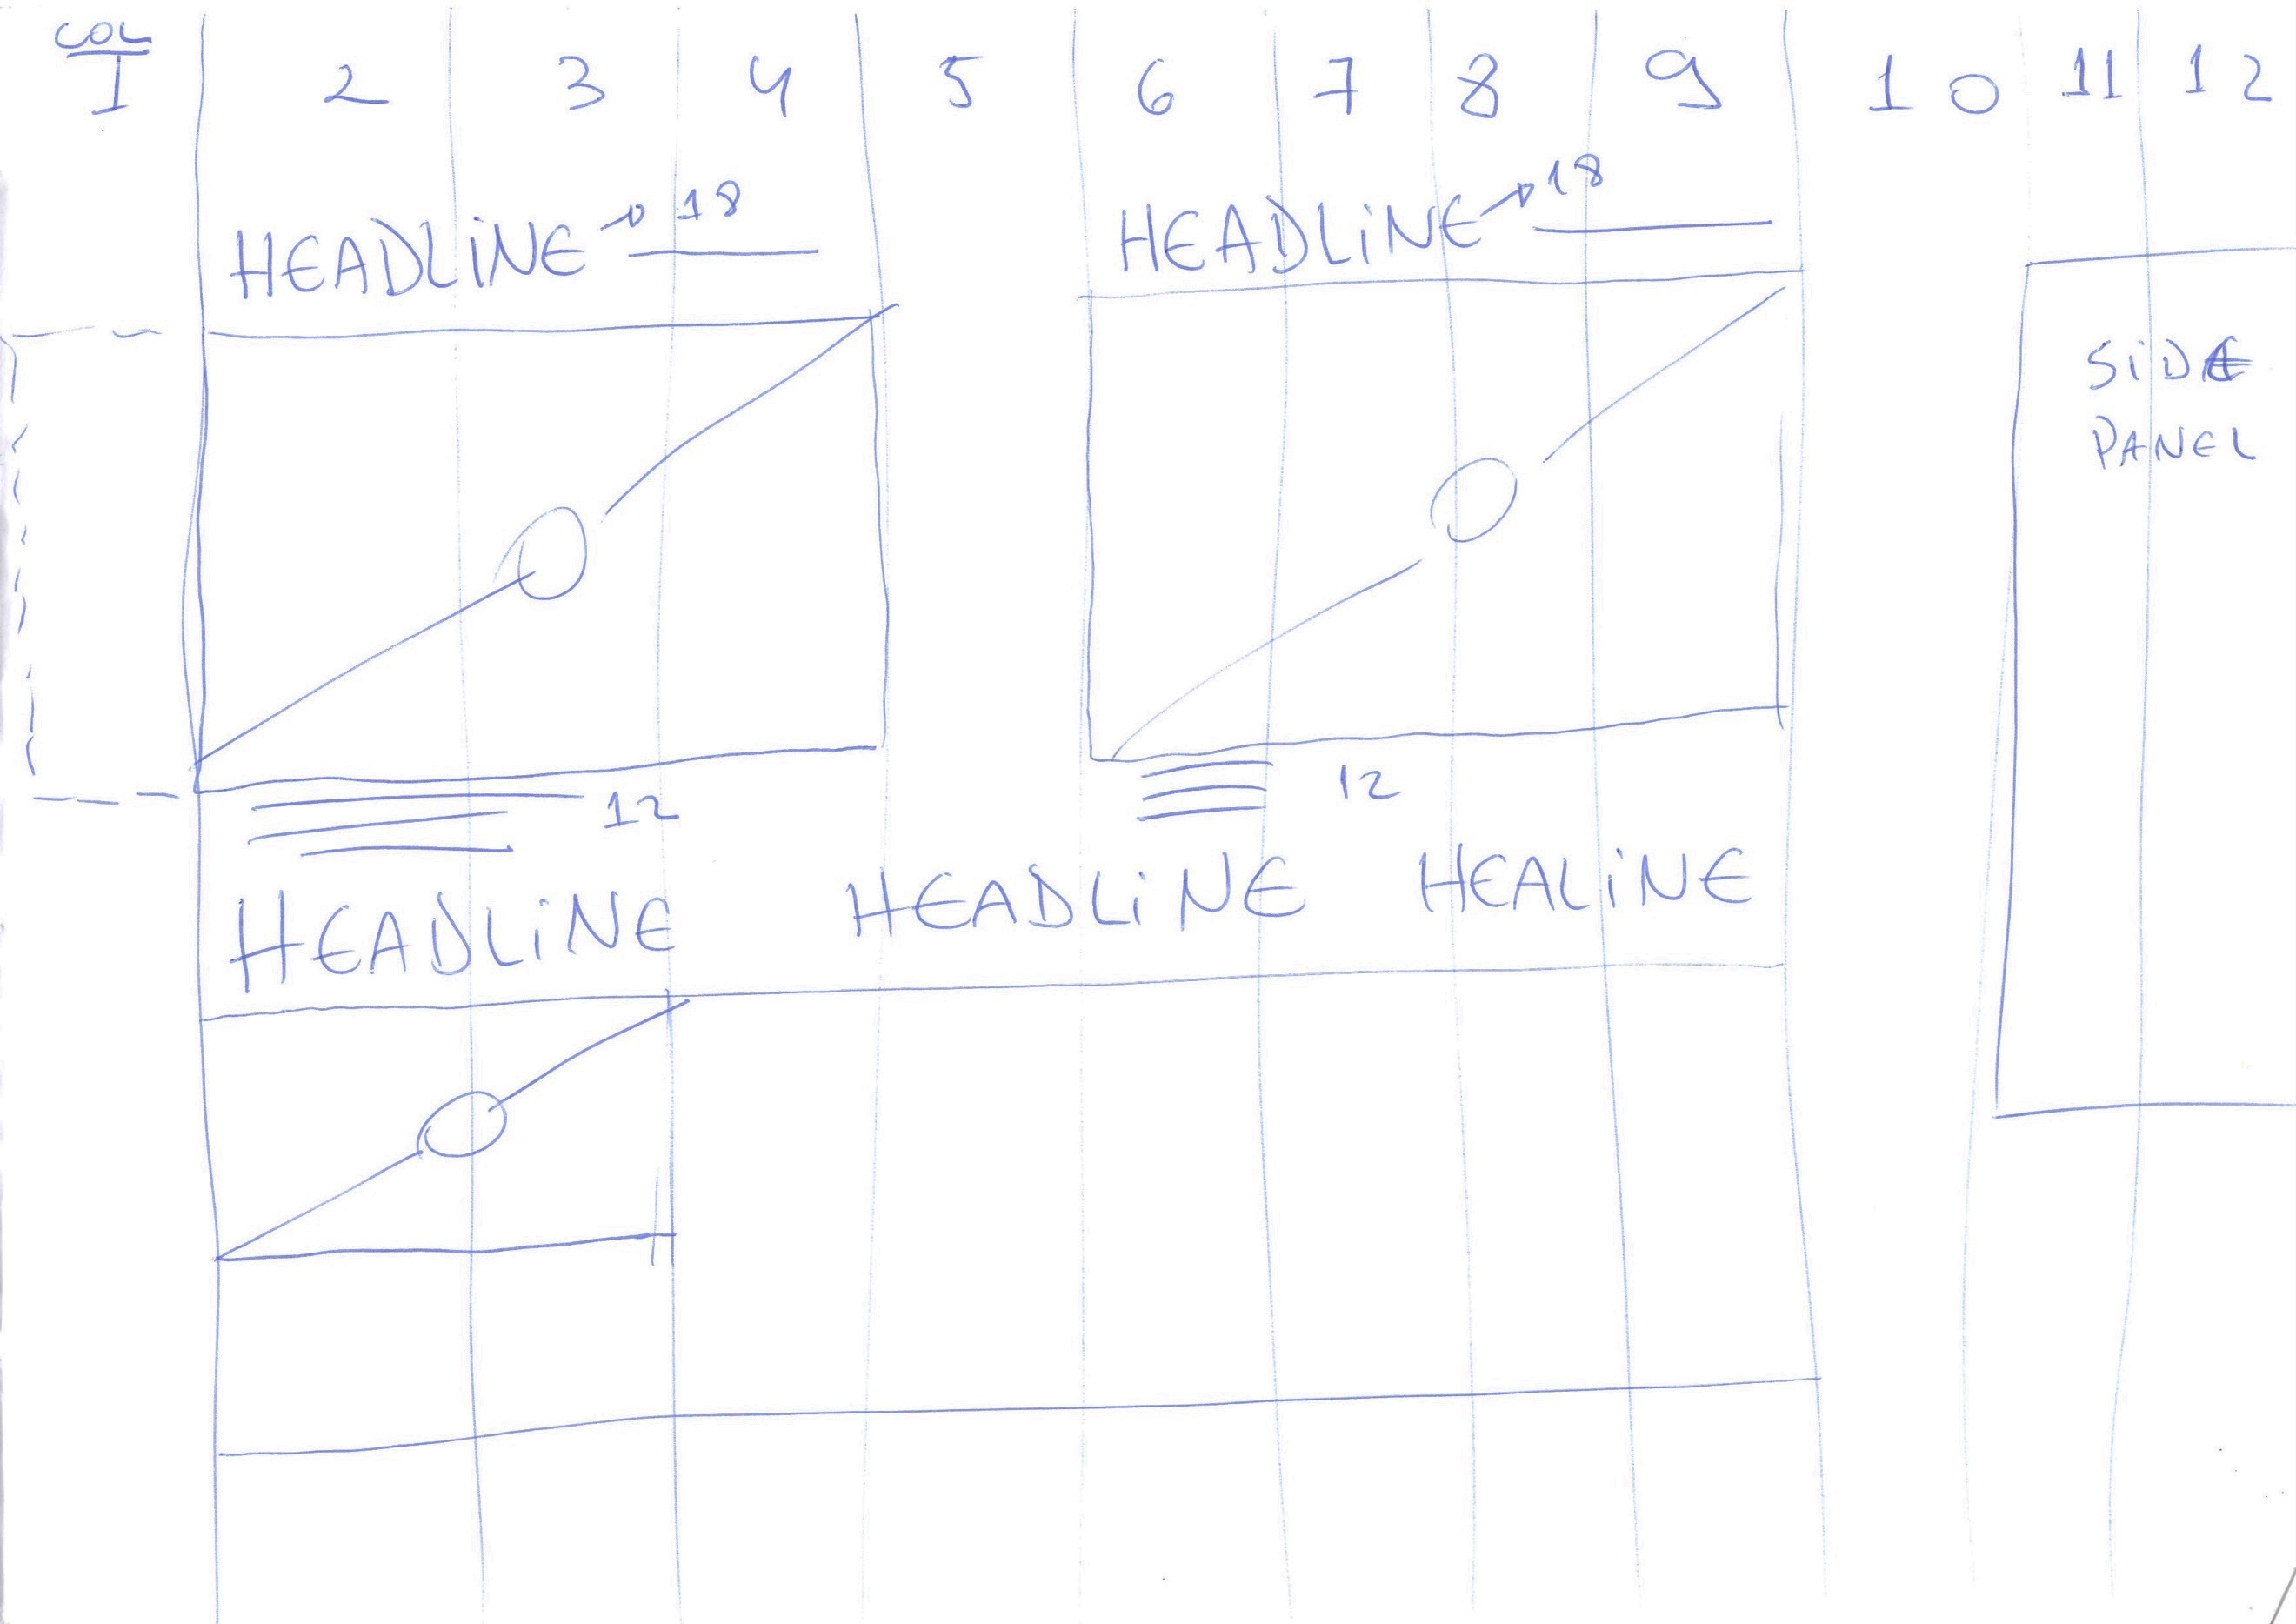 COL
1 2 3 4 5 6 7 8 9 10 11 12
HEADLINE → 18
HEADLINE → 18
SIDE
PANEL
12
12
HEADLINE HEADLINE HEALINE